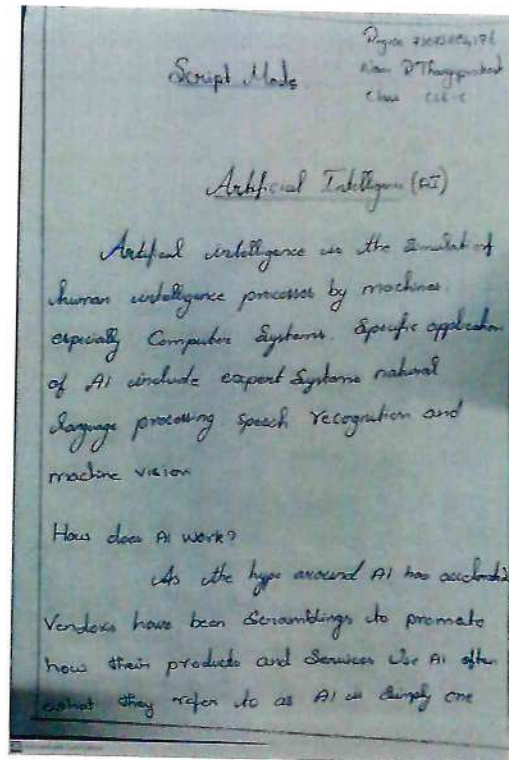 Script Mode
Name D Thangaprakash
Class CSE-C
Artificial Intelligence (AI)
Artifical intelligence is the Simulation of
human intelligence processes by machines.
especially Computer Systems. Specific application
of AI include expert Systems natural
language processing. Speech recognition and
machine vision
How does AI work?
As the hype around AI has accelerated
Vendors have been Scramblings to promote
how their products and Services Use AI often
what they refer to as AI is Simply one